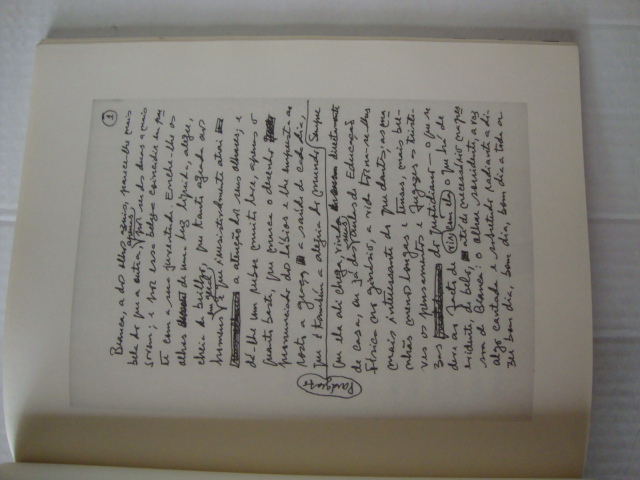 1
Bianca, a dos olhos azuis, parece-lhe mais
bela do que a outra, apenas por ser das duas a mais
jovem; e por essa beleza coincidir em par
te com a sua juventude. Enche-lhe os
olhos de uma luz líquida, alegre,
cheia de brilho, que tanto agrada aos
homens em geral, e que irresistivelmente atrai
a atenção dos seus olhares; e
dá-lhe um rubor muito leve, apenas o
quanto baste, que marca o desenho
pronunciado dos lábios e lhe empresta ao
rosto a graça a saúde de cada dia,
que é também a alegria do mundo. Sempre
Parágrafo
que ela ali chega, vinda directamente
de casa, ou já das suas aulas de Educação
Física no ginásio, a vida torna-se-lhes
mais interessante do que dantes; as ma
nhãs menos longas e tensas, mais bre-
ves os pensamentos e fugazes as triste-
zas do quotidiano — o que se
deve ao facto de vir com ela o que há de
evidente, de belo, até de necessário na pes
soa de Bianca: o olhar sorridente, a voz
algo cantada e sobretudo radiante a di-
zer bom dia, bom dia, bom dia a toda a